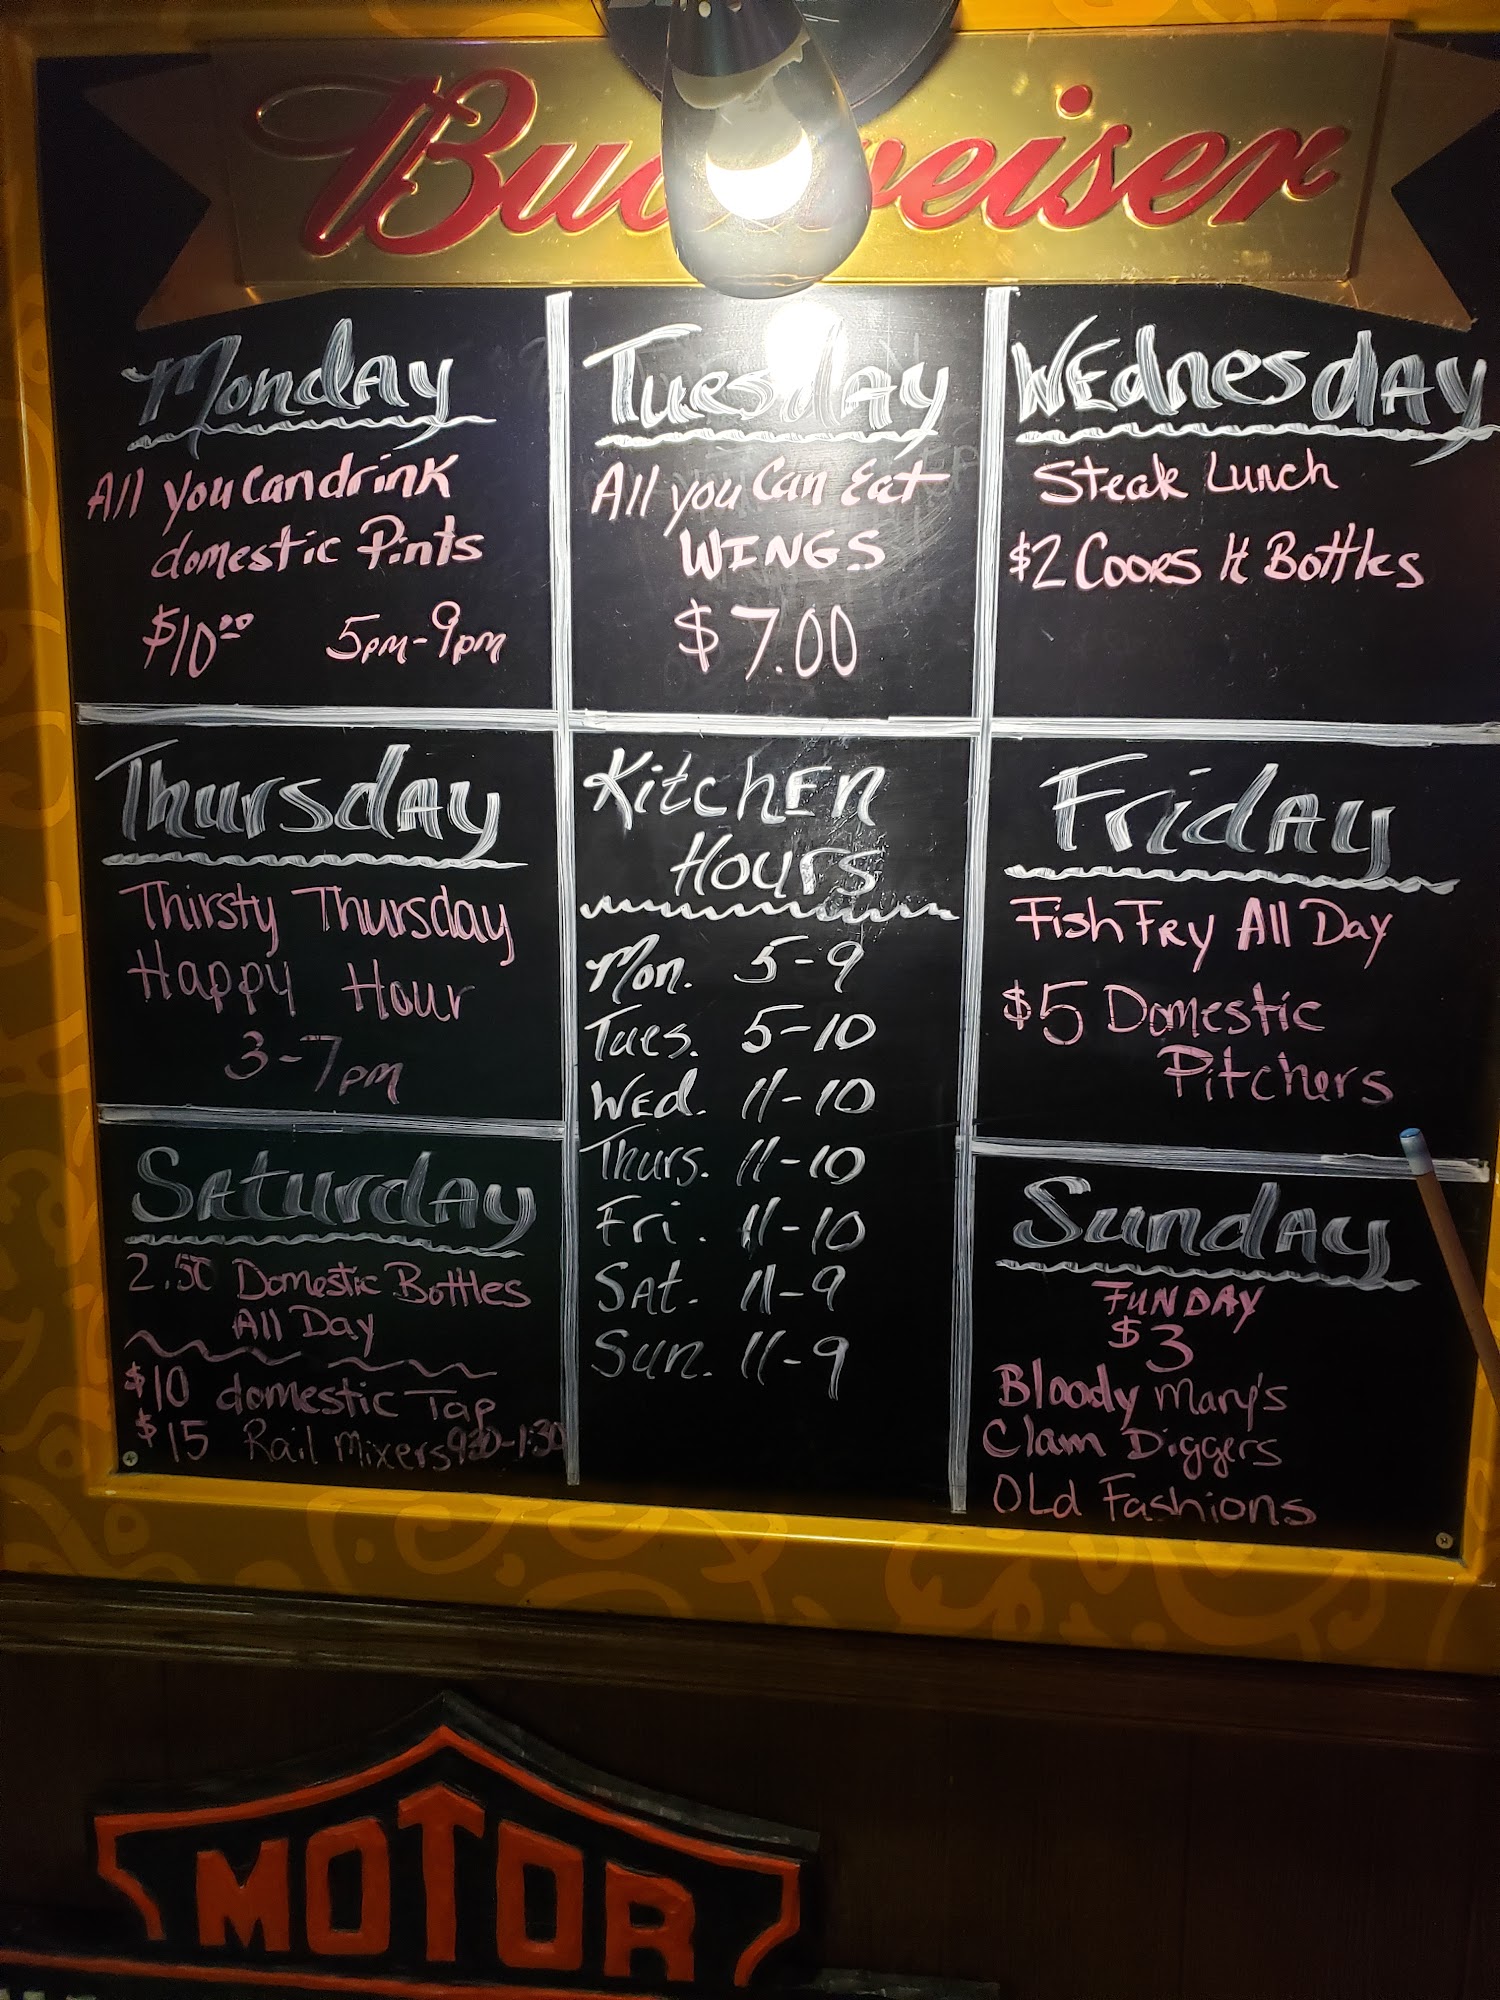 Budweiser
Monday
All you can drink
domestic Pints
$10.00 5pm-9pm
Tuesday
All you Can Eat
WINGS
$7.00
WEdnesdAy
Steak Lunch
$2 Coors lt Bottles
Thursday
Thirsty Thursday
Happy Hour
3-7pm
KitchEn
Hours
Mon. 5-9
Tues. 5-10
WEd. 11-10
Thurs. 11-10
Fri. 11-10
SAt. 11-9
Sun. 11-9
Friday
Fish Fry All Day
$5 Domestic
Pitchers
Saturday
2.50 Domestic Bottles
All Day
$10 domestic Tap
$15 Rail Mixers 930-1:30
Sunday
FUNDAY
$3
Bloody Mary's
Clam Diggers
OLd Fashions
MOTOR